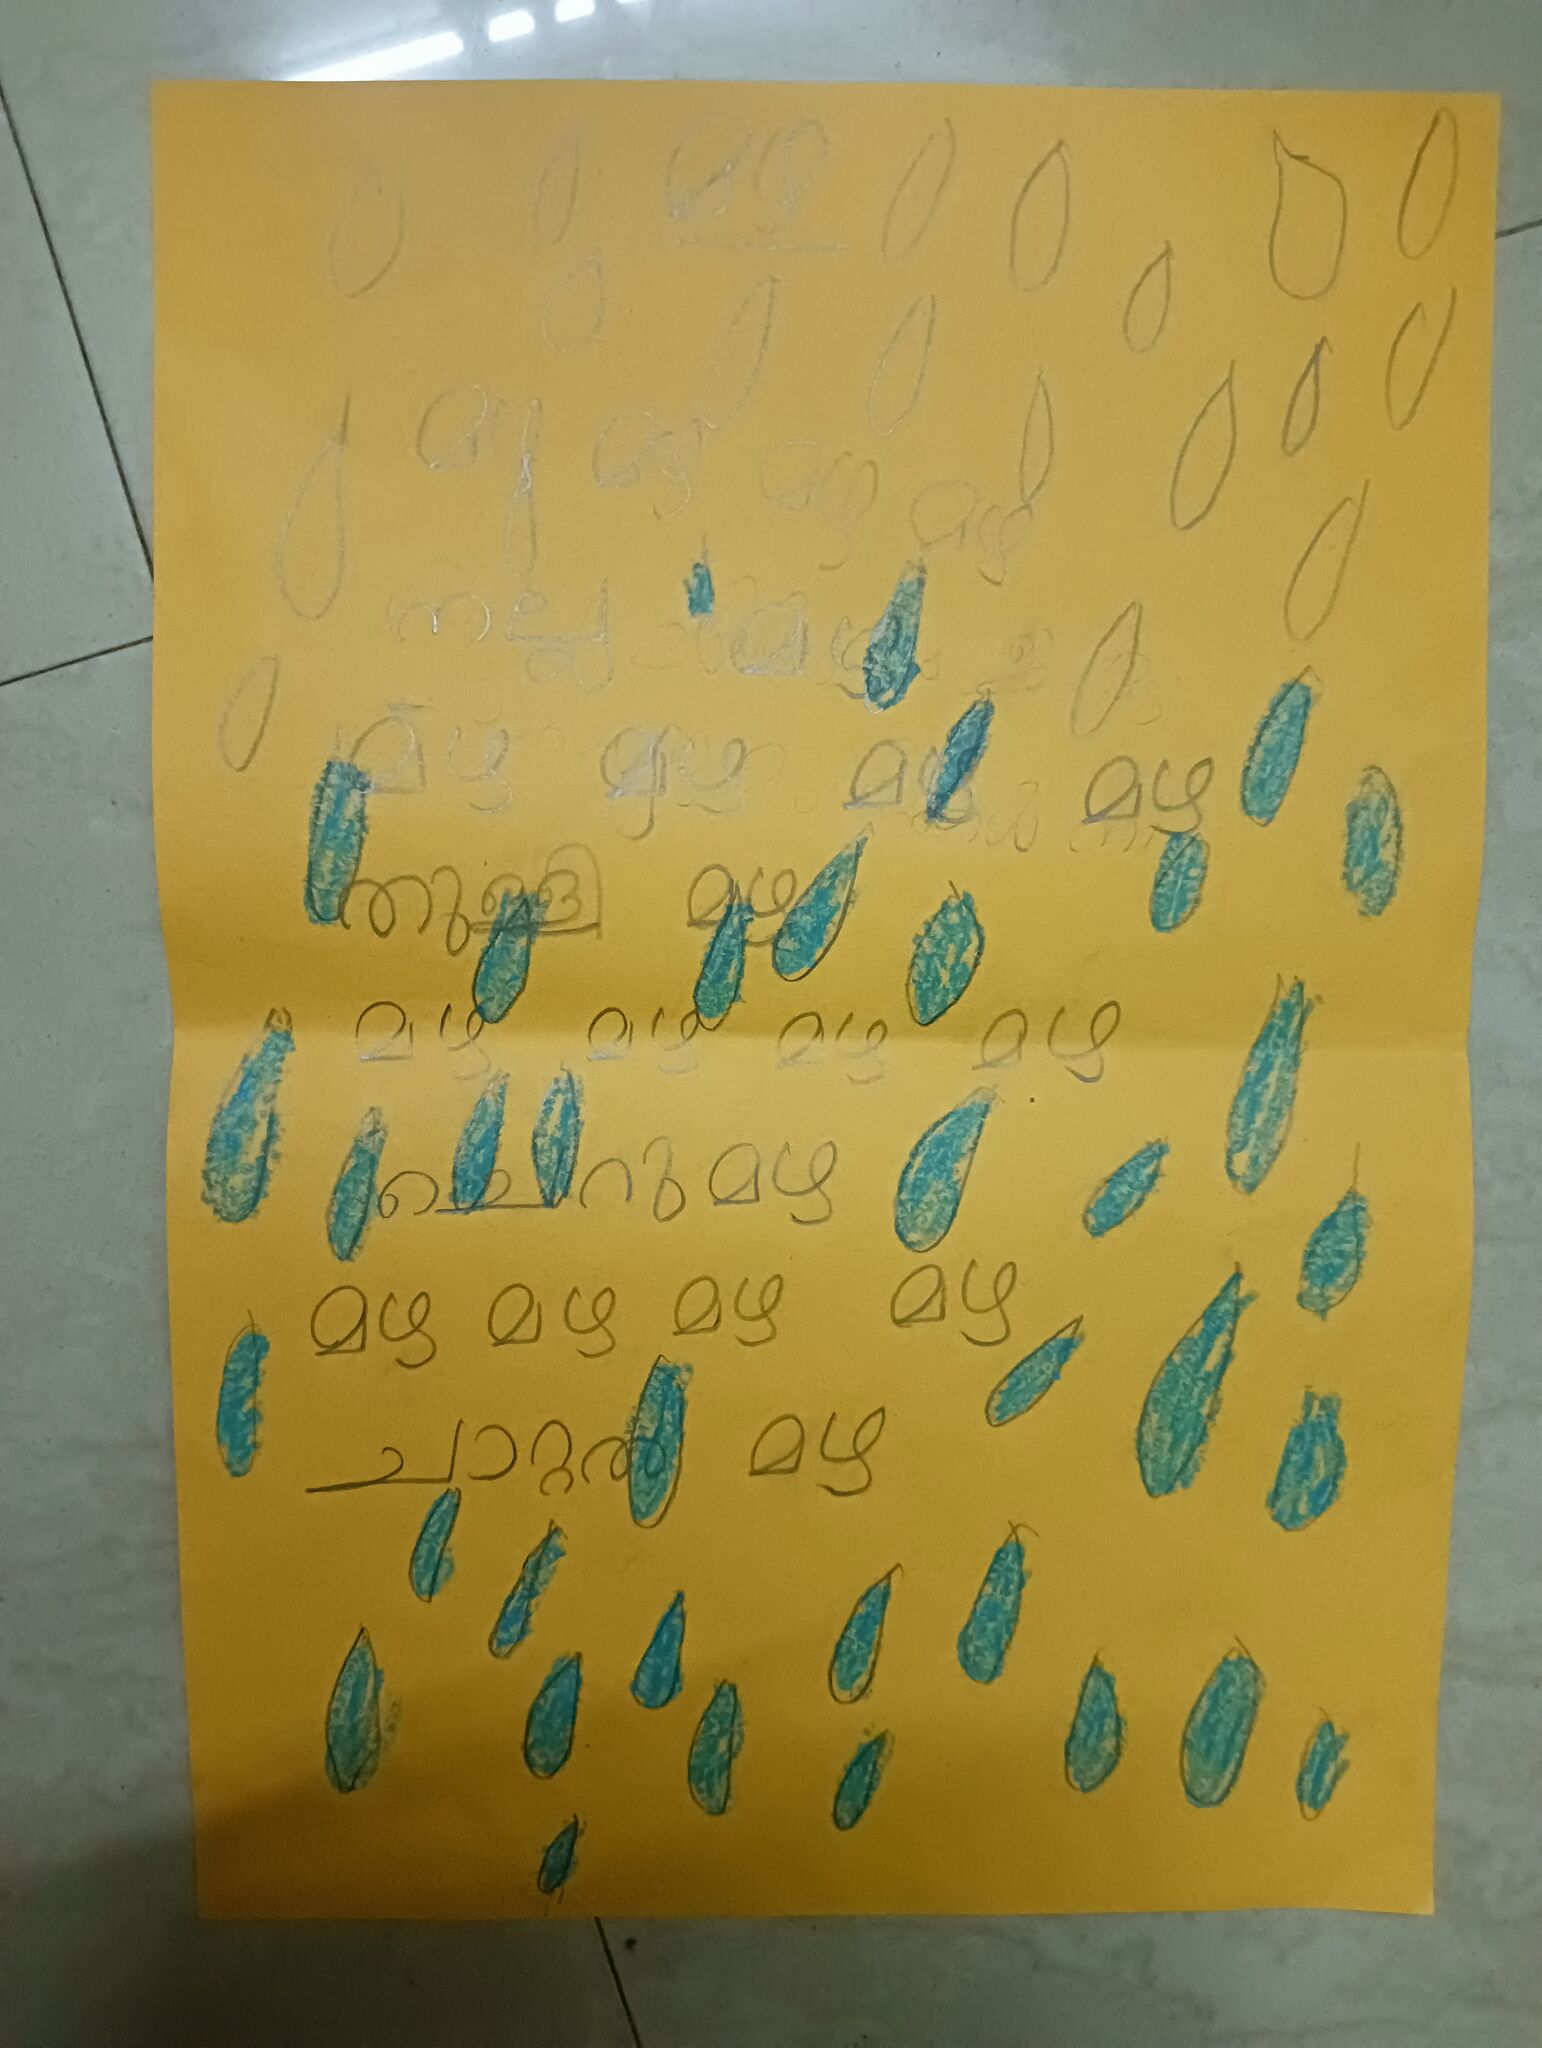 മഴ
മഴ മഴ മഴ മഴ
നല്ല മഴ
മഴ മഴ മഴ മഴ
തുള്ളി മഴ
മഴ മഴ മഴ മഴ
ചെറു മഴ
മഴ മഴ മഴ മഴ
ചാറ്റൽ മഴ